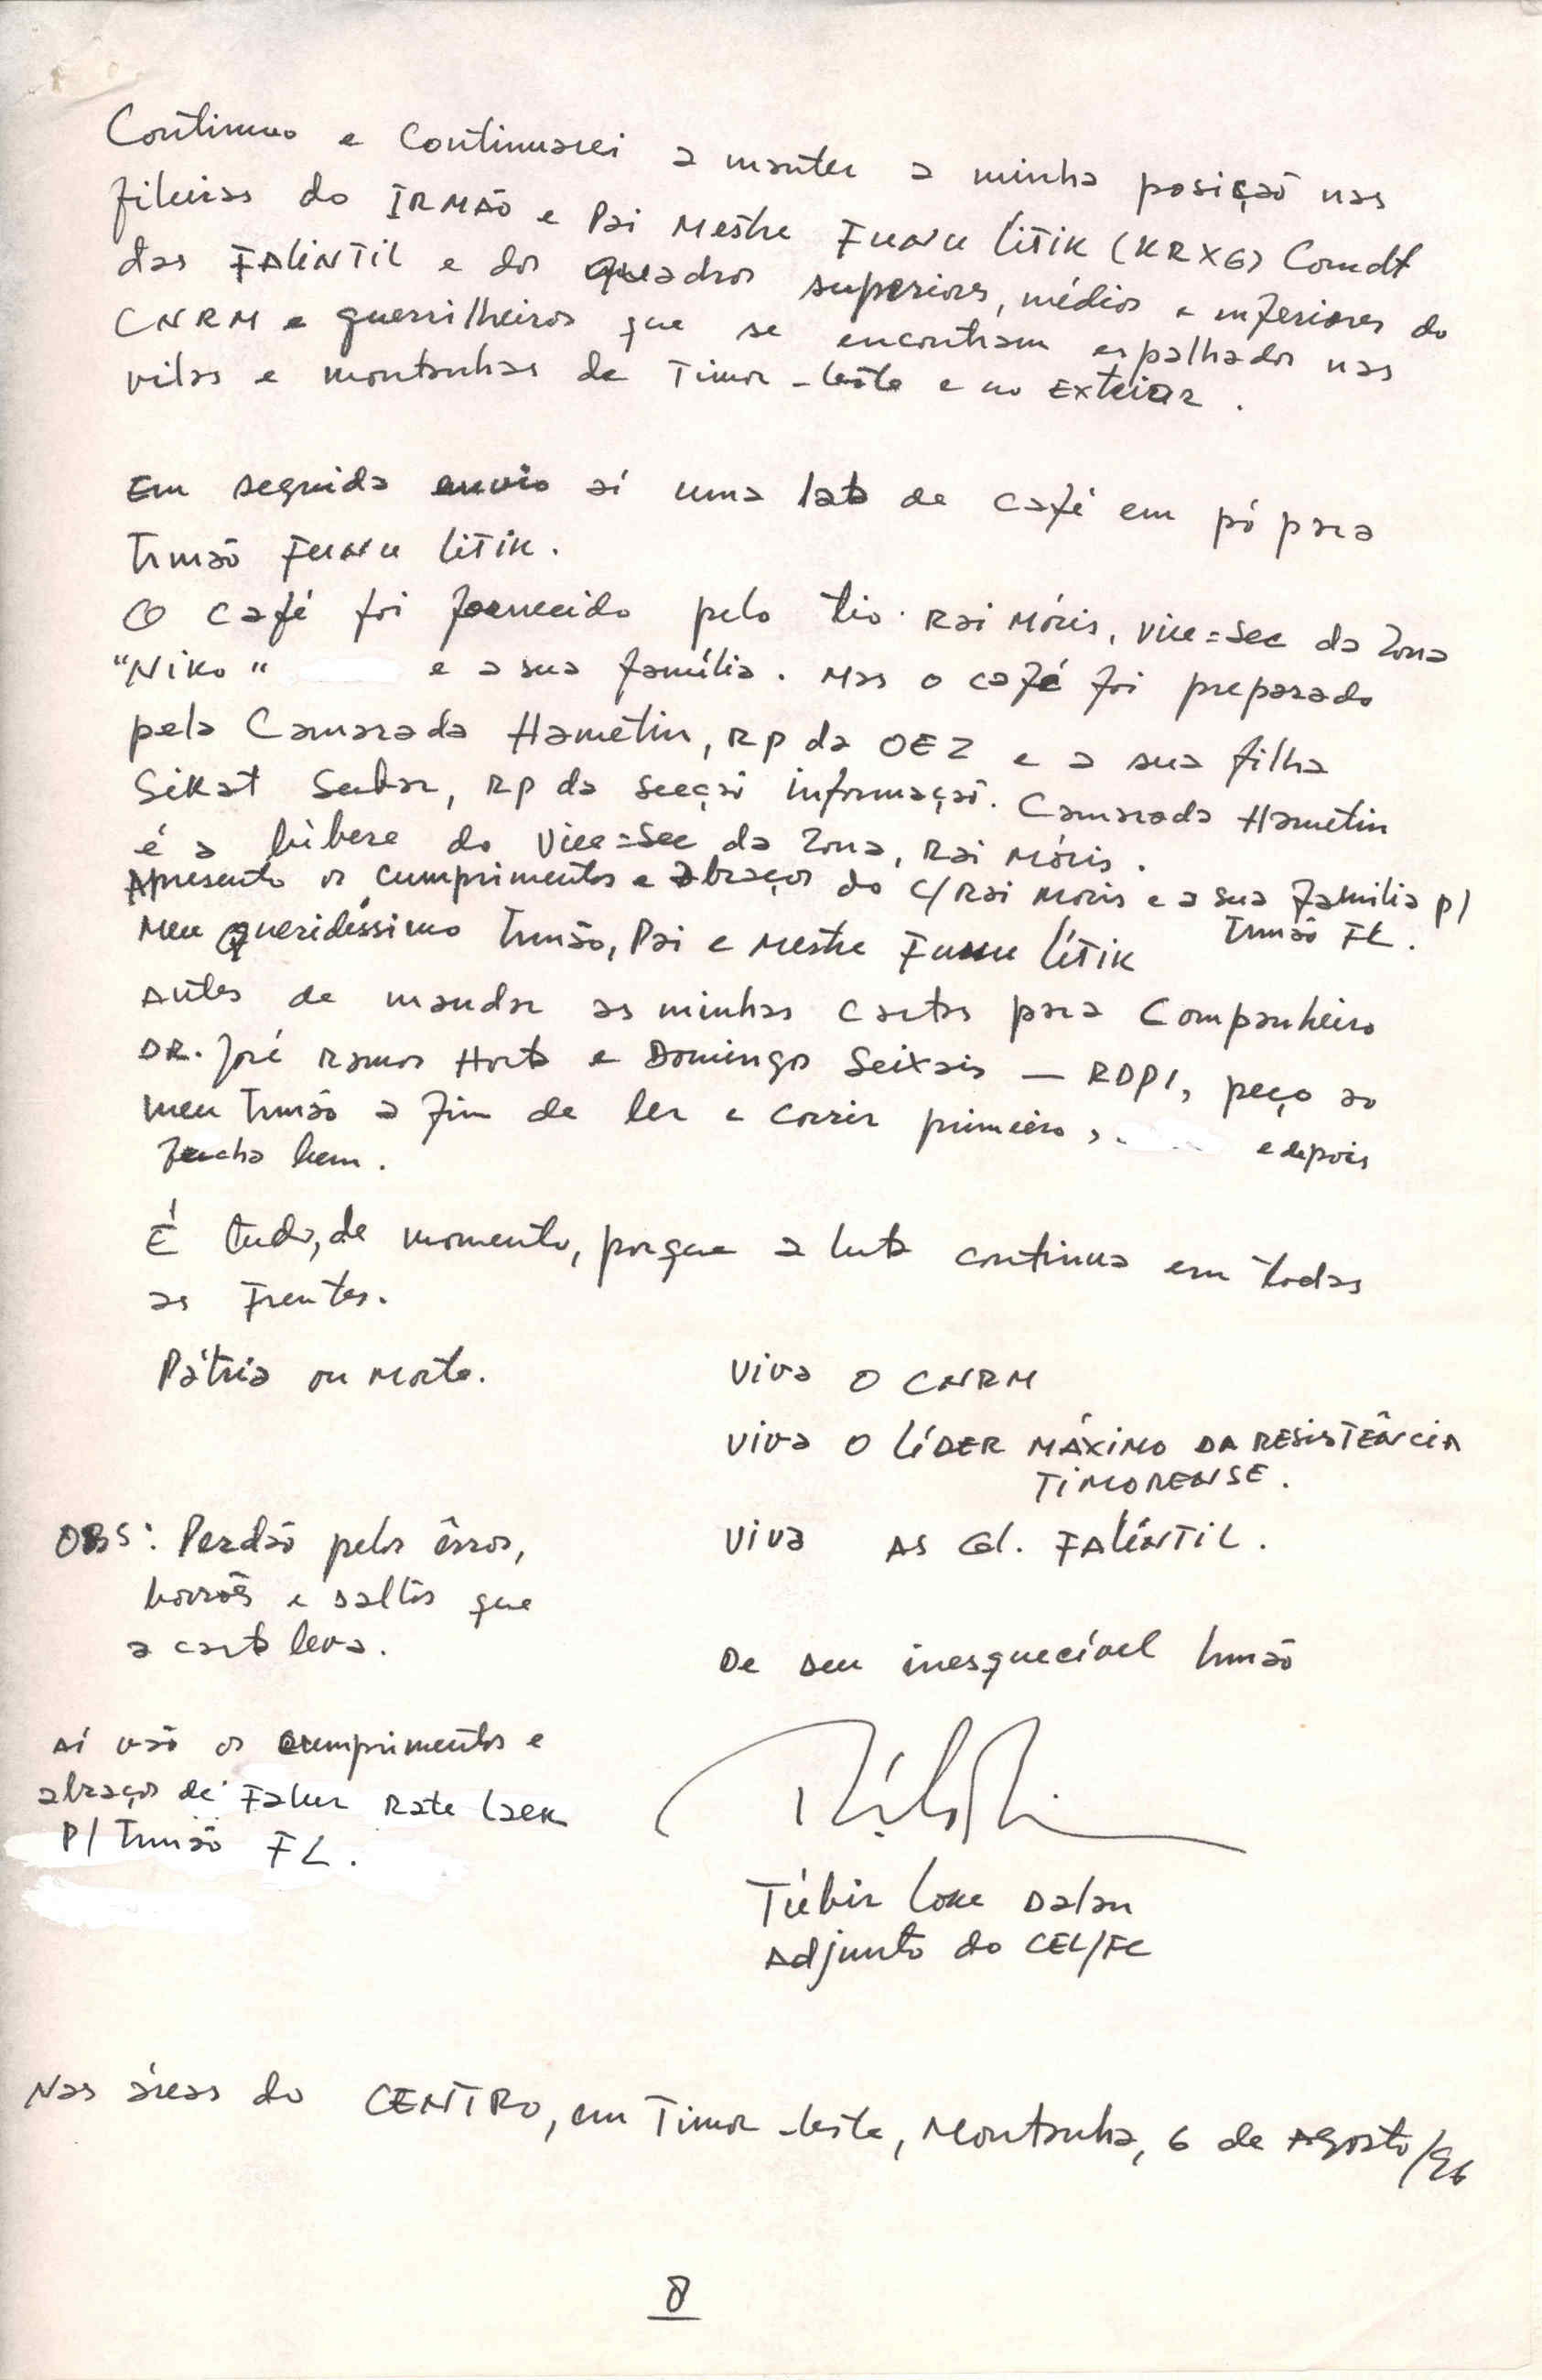 Continuo e Continuarei a manter a minha posição nas
fileiras do IRMÃO e Pai Mestre FUNU LITIK (KRXG) Comdt
das FALINTIL e dos Quadros superiores, médios e inferiores do
CNRM e guerrilheiros que se encontram espalhados nas
vilas e montanhas de Timor-Leste e no EXterior.
Em seguida envio aí uma lata de café em pó para
Irmão FUNU LITIK.
O café foi fornecido pelo tio Rai Móris, Vice=Sec da Zona
"Niko" e a sua família. Mas o café foi preparado
pela Camarada Hametin, RP da OEZ e a sua filha
Sikat Subar, RP da Secção informação. Camarada Hametin
é a bíbere do Vice=Sec da Zona, Rai Móris.
Apresento os cumprimentos e abraços do C/Rai Moris e a sua família p/
Irmão FL.
Meu Queridíssimo Irmão, Pai e Mestre Funu Lítik
Antes de mandar as minhas cartas para Companheiro
DR. José Ramos Horta e Domingos Seixais — RDPI, peço ao
meu Irmão a fim de ler e corrir primeiro, e depois
fecha bem.
É tudo, de momento, porque a luta continua em todas
as Frentes.
Pátria ou Morte.
Viva O CNRM
Viva O LÍDER MÁXIMO DA RESISTÊNCIA
TIMORENSE.
Viva AS Gl. FALINTIL.
OBS: Perdão pelos êrros,
borrões e saltos que
a carta leva.
De seu inesquecível Irmão
Aí vão os cumprimentos e
abraços de Falur Rate Laek
P/ Irmão FL.
Túbir Loke Dalan
Adjunto do CEL/FC
Nas áreas do CENTRO, em Timor-Leste, Montanha, 6 de Agosto/96
8